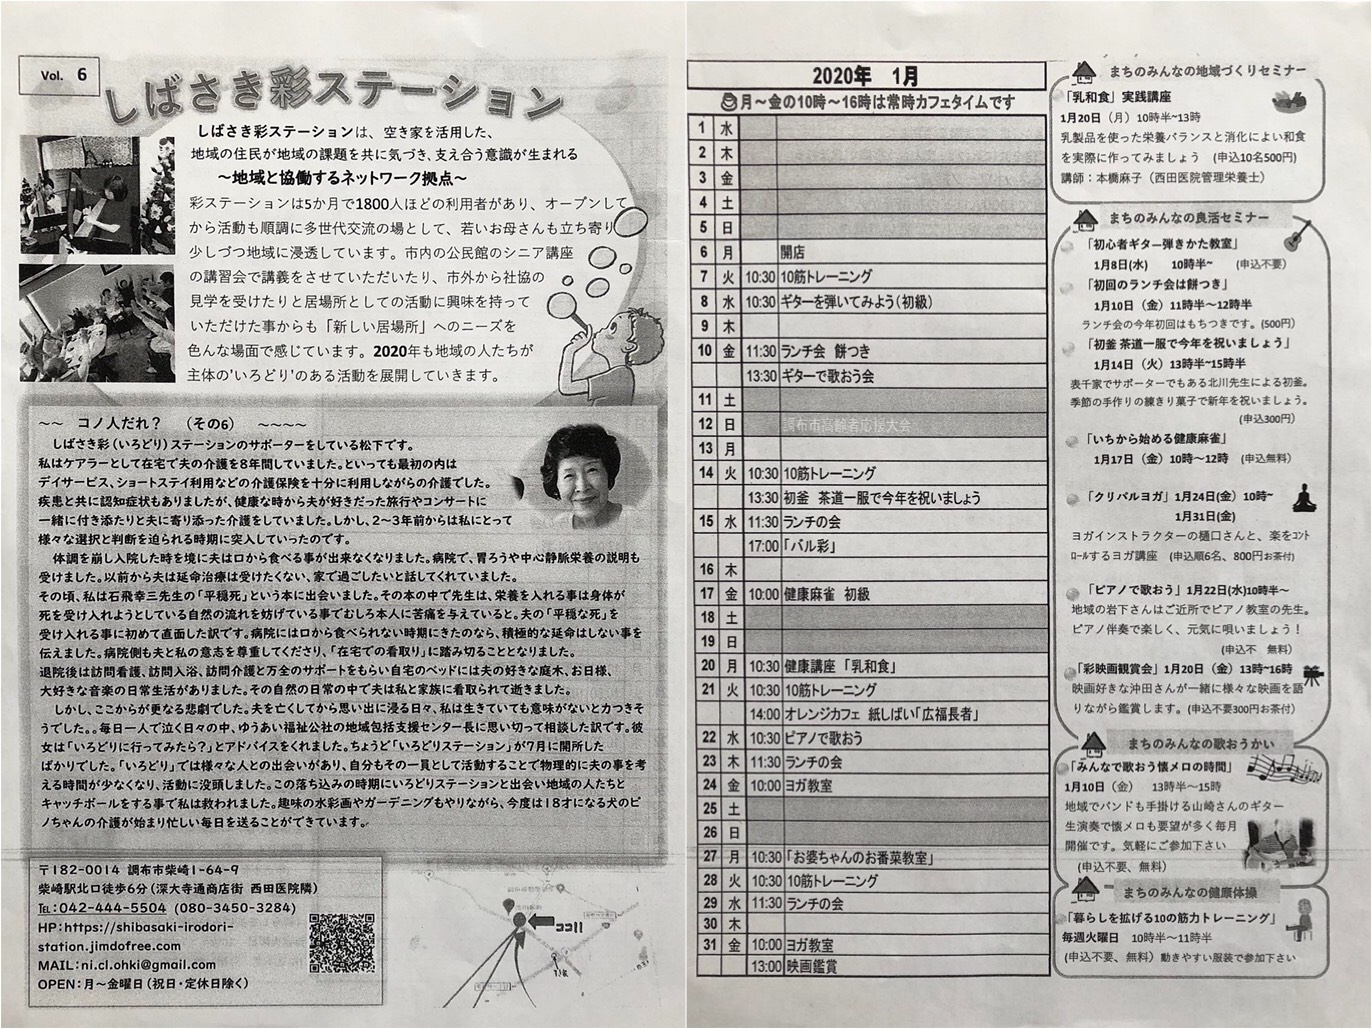 Vol. 6
しばさき彩ステーション
しばさき彩ステーションは、空き家を活用した、
地域の住民が地域の課題を共に気づき、支え合う意識が生まれる
～地域と協働するネットワーク拠点～
彩ステーションは5か月で1800人ほどの利用者があり、オープンして
から活動も順調に多世代交流の場として、若いお母さんも立ち寄り
少しづつ地域に浸透しています。市内の公民館のシニア講座
の講習会で講義をさせていただいたり、市外から社協の
見学を受けたりと居場所としての活動に興味を持って
いただけた事からも「新しい居場所」へのニーズを
色んな場面で感じています。2020年も地域の人たちが
主体の'いろどり'のある活動を展開していきます。
～～ コノ人だれ？ （その6） ～～～～
しばさき彩（いろどり）ステーションのサポーターをしている松下です。
私はケアラーとして在宅で夫の介護を8年間していました。といっても最初の内は
デイサービス、ショートステイ利用などの介護保険を十分に利用しながらの介護でした。
疾患と共に認知症状もありましたが、健康な時から夫が好きだった旅行やコンサートに
一緒に付き添たりと夫に寄り添った介護をしていました。しかし、2～3年前からは私にとって
様々な選択と判断を迫られる時期に突入していったのです。
体調を崩し入院した時を境に夫は口から食べる事が出来なくなりました。病院で、胃ろうや中心静脈栄養の説明も
受けました。以前から夫は延命治療は受けたくない、家で過ごしたいと話してくれていました。
その頃、私は石飛幸三先生の「平穏死」という本に出会いました。その本の中で先生は、栄養を入れる事は身体が
死を受け入れようとしている自然の流れを妨げている事でむしろ本人に苦痛を与えていると。夫の「平穏な死」を
受け入れる事に初めて直面した訳です。病院には口から食べられない時期にきたのなら、積極的な延命はしない事を
伝えました。病院側も夫と私の意志を尊重してくださり、「在宅での看取り」に踏み切ることとなりました。
退院後は訪問看護、訪問入浴、訪問介護と万全のサポートをもらい自宅のベッドには夫の好きな庭木、お日様、
大好きな音楽の日常生活がありました。その自然の日常の中で夫は私と家族に看取られて逝きました。
しかし、ここからが更なる悲劇でした。夫を亡くしてから思い出に浸る日々、私は生きていても意味がないと力つきそ
うでした。。毎日一人で泣く日々の中、ゆうあい福祉公社の地域包括支援センター長に思い切って相談した訳です。彼
女は「いろどりに行ってみたら？」とアドバイスをくれました。ちょうど「いろどりステーション」が7月に開所した
ばかりでした。「いろどり」では様々な人との出会いがあり、自分もその一員として活動することで物理的に夫の事を考
える時間が少なくなり、活動に没頭しました。この落ち込みの時期にいろどりステーションと出会い地域の人たちと
キャッチボールをする事で私は救われました。趣味の水彩画やガーデニングもやりながら、今度は18才になる犬のピ
ノちゃんの介護が始まり忙しい毎日を送ることができています。
〒182-0014 調布市柴崎1-64-9
柴崎駅北口徒歩6分（深大寺通商店街 西田医院隣）
TEL:042-444-5504 (080-3450-3284)
HP:https://shibasaki-irodori-
station.jimdofree.com
MAIL:ni.cl.ohki@gmail.com
OPEN:月～金曜日（祝日・定休日除く）
ココ!!
2020年 1月
月～金の10時～16時は常時カフェタイムです
1 水
2 木
3 金
4 土
5 日
6 月 開店
7 火 10:30 10筋トレーニング
8 水 10:30 ギターを弾いてみよう（初級）
9 木
10 金 11:30 ランチ会 餅つき
13:30 ギターで歌おう会
11 土
12 日 調布市高齢者応援大会
13 月
14 火 10:30 10筋トレーニング
13:30 初釜 茶道一服で今年を祝いましょう
15 水 11:30 ランチの会
17:00 「バル彩」
16 木
17 金 10:00 健康麻雀 初級
18 土
19 日
20 月 10:30 健康講座 「乳和食」
21 火 10:30 10筋トレーニング
14:00 オレンジカフェ 紙しばい「広福長者」
22 水 10:30 ピアノで歌おう
23 木 11:30 ランチの会
24 金 10:00 ヨガ教室
25 土
26 日
27 月 10:30 「お婆ちゃんのお番菜教室」
28 火 10:30 10筋トレーニング
29 水 11:30 ランチの会
30 木
31 金 10:00 ヨガ教室
13:00 映画鑑賞
まちのみんなの地域づくりセミナー
「乳和食」実践講座
1月20日（月）10時半~13時
乳製品を使った栄養バランスと消化によい和食
を実際に作ってみましょう （申込10名500円）
講師：本橋麻子（西田医院管理栄養士）
まちのみんなの良活セミナー
「初心者ギター弾きかた教室」
1月8日(水) 10時半~ （申込不要）
「初回のランチ会は餅つき」
1月10日（金）11時半～12時半
ランチ会の今年初回はもちつきです。(500円）
「初釜 茶道一服で今年を祝いましょう」
1月14日（火）13時半~15時半
表千家でサポーターでもある北川先生による初釜。
季節の手作りの練きり菓子で新年を祝いましょう。
（申込300円）
「いちから始める健康麻雀」
1月17日（金）10時～12時 （申込無料）
「クリパルヨガ」1月24日(金）10時~
1月31日(金)
ヨガインストラクターの樋口さんと、楽をｺﾝﾄ
ﾛｰﾙするヨガ講座 （申込順6名、800円お茶付）
「ピアノで歌おう」1月22日(水)10時半～
地域の岩下さんはご近所でピアノ教室の先生。
ピアノ伴奏で楽しく、元気に唄いましょう！
（申込不 無料）
「彩映画観賞会」1月20日（金）13時~16時
映画好きな沖田さんが一緒に様々な映画を語
りながら鑑賞します。（申込不要300円お茶付）
まちのみんなの歌おうかい
「みんなで歌おう懐メロの時間」
1月10日（金） 13時半～15時
地域でバンドも手掛ける山崎さんのギター
生演奏で懐メロも要望が多く毎月
開催です。気軽にご参加下さい
（申込不要、無料）
まちのみんなの健康体操
「暮らしを拡げる10の筋力トレーニング」
毎週火曜日 10時半～11時半
（申込不要、無料）動きやすい服装で参加下さい